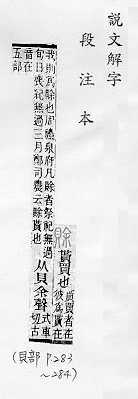 說文解字
段注本
賒
貰買也
貰買者在
彼爲貰在
我則爲賒也周禮泉府凡賒者祭祀無過
旬日喪紀無過三月鄭司農云賒貰也
从貝余聲
式車
切古
音在
五部
(貝部 P283
~284)